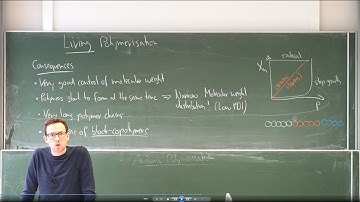 Living Polymerisation
Consequences
• Very good control of molecular weight
• Polymers start to form at the same time ⇒ Narrow Molecular weight
distribution! (Low PDI)
• Very long polymer chains
of block-copolymers
radical
Xn
step growth
P
Polymerisation